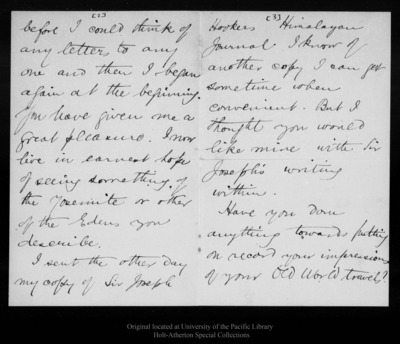 (2)
before I could think of
any letters to any
one and then I began
again at the beginning.
You have given me a
great pleasure. I now
live in earnest hope
of seeing something of
the Yosemite or other
of the Edens you
describe.
I sent the other day
my copy of Sir Joseph
(3)
Hookers Himalayan
Journal I know of
another copy I can get
sometime when
convenient. But I
thought you would
like mine with Sir
Joseph's writing
within.
Have you done
anything towards putting
on record your impressions
of your Old World travels?
Original located at University of the Pacific Library
Holt-Atherton Special Collections